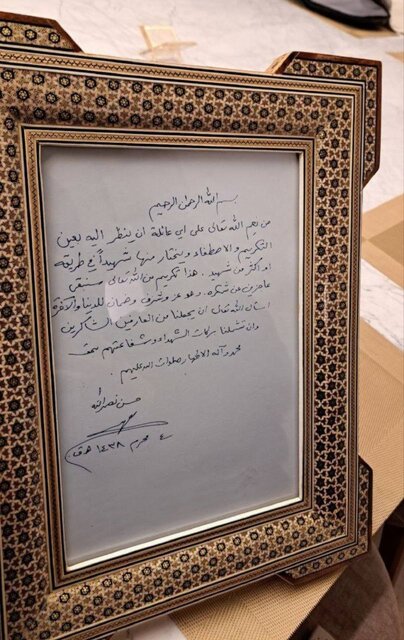 بسم الله الرحمن الرحيم
من نعم الله تعالى على اي عائلة ان ينظر اليه بعين
التكريم والاصطفاء ويختار منها شهيداً في طريقه
او اكثر من شهيد. هذا تكريم من الله تعالى وسنبقى
عاجزين عن شكره. وهو عز وشرف وضمان للدنيا والآخرة
اسأل الله تعالى ان يجعلنا من العارفين الشاكرين
وان تشملنا بركات الشهداء وشفاعتهم بحق
محمد وآله الاطهار صلوات الله عليهم.
حسن نصرالله
٤ محرم ١٤٣٨ هـ ق